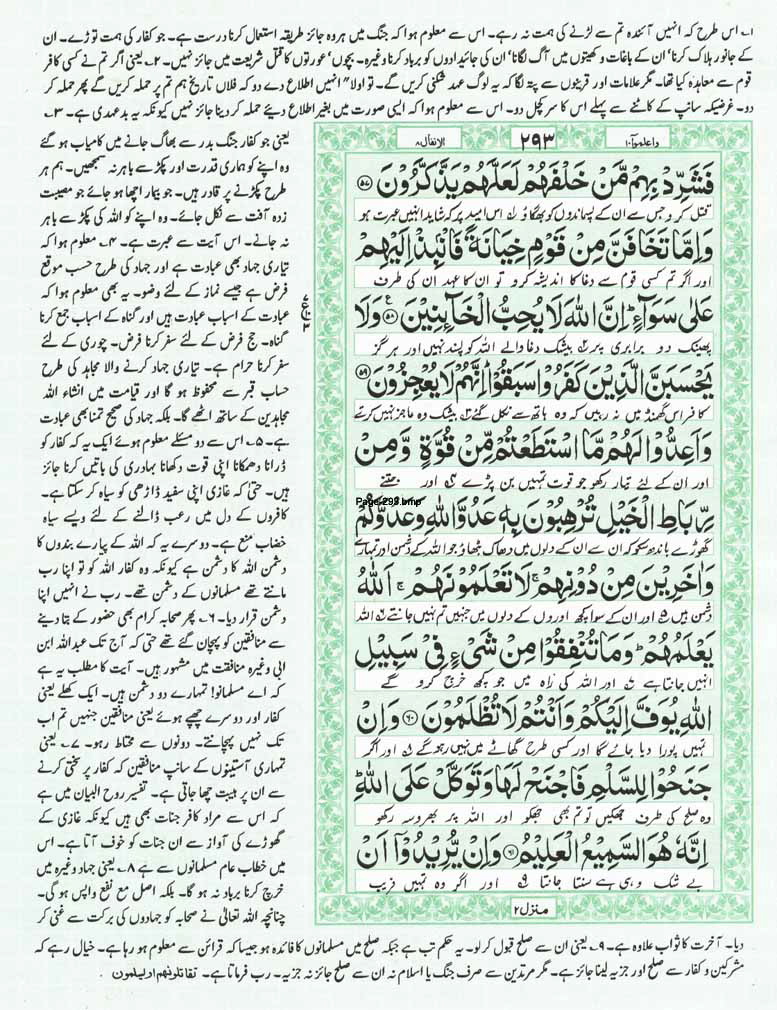 ۱؎ اس طرح کہ انہیں آئندہ تم سے لڑنے کی ہمت نہ رہے۔ اس سے معلوم ہوا کہ جنگ میں ہر وہ جائز طریقہ استعمال کرنا درست ہے۔ جو کفار کی ہمت توڑے۔ ان
کے جانور ہلاک کرنا' ان کے باغات و کھیتوں میں آگ لگانا' ان کی جائیدادوں کو برباد کرنا وغیرہ۔ بچوں' عورتوں کا قتل شریعت میں جائز نہیں۔ ۲؎ یعنی اگر تم نے کسی کافر
قوم سے معاہدہ کیا تھا۔ مگر علامات اور قرینوں سے پتہ لگا کہ یہ لوگ عہد شکنی کریں گے۔ تو اولا" انہیں اطلاع دے دو کہ فلاں تاریخ ہم تم پر حملہ کریں گے پھر حملہ کر
دو۔ غرضیکہ سانپ کے کاٹنے سے پہلے اس کا سر کچل دو۔ اس سے معلوم ہوا کہ ایسی صورت میں بغیر اطلاع دیئے حملہ کر دینا جائز نہیں کیونکہ یہ بدعہدی ہے۔ ۳؎
واعلموآ۱۰
۲۹۳
الانفال۸
فَشَرِّدْ بِهِمْ مَّنْ خَلْفَهُمْ لَعَلَّهُمْ يَذَّكَّرُوْنَ ﴿۵۷﴾
قتل کرو جس سے ان کے پسماندوں کو بھگاؤ اس امید پر کہ شاید انہیں عبرت ہو
وَاِمَّا تَخَافَنَّ مِنْ قَوْمٍ خِيَانَةً فَانْۢبِذْ اِلَيْهِمْ
اور اگر تم کسی قوم سے دغا کا اندیشہ کرو تو ان کا عہد ان کی طرف
عَلٰى سَوَآءٍ ؕ اِنَّ اللّٰهَ لَا يُحِبُّ الْخَآئِنِيْنَ ﴿۵۸﴾ وَلَا
پھینک دو برابری پر بیشک دغا والے اللہ کو پسند نہیں اور ہر گز
يَحْسَبَنَّ الَّذِيْنَ كَفَرُوْا سَبَقُوْا ؕ اِنَّهُمْ لَا يُعْجِزُوْنَ ﴿۵۹﴾
کافر اس گھمنڈ میں نہ رہیں کہ وہ ہاتھ سے نکل گئے بیشک وہ عاجز نہیں کرتے
وَاَعِدُّوْا لَهُمْ مَّا اسْتَطَعْتُمْ مِّنْ قُوَّةٍ وَّمِنْ
اور ان کے لئے تیار رکھو جو قوت تمہیں بن پڑے اور جتنے
Page-293.bmp
رِّبَاطِ الْخَيْلِ تُرْهِبُوْنَ بِهٖ عَدُوَّ اللّٰهِ وَعَدُوَّكُمْ
گھوڑے باندھ سکو کہ ان سے ان کے دلوں میں دھاک بٹھاؤ جو اللہ کے دشمن اور تمہارے
وَاٰخَرِيْنَ مِنْ دُوْنِهِمْ ۚ لَا تَعْلَمُوْنَهُمْ ۚ اَللّٰهُ
دشمن ہیں اور ان کے سوا کچھ اوروں کے دلوں میں جنہیں تم نہیں جانتے اللہ
يَعْلَمُهُمْ ؕ وَمَا تُنْفِقُوْا مِنْ شَيْءٍ فِيْ سَبِيْلِ
انہیں جانتا ہے اور اللہ کی راہ میں جو کچھ خرچ کرو گے
اللّٰهِ يُوَفَّ اِلَيْكُمْ وَاَنْتُمْ لَا تُظْلَمُوْنَ ﴿۶۰﴾ وَاِنْ
تمہیں پورا دیا جائے گا اور کسی طرح گھاٹے میں نہیں رہو گے اور اگر
جَنَحُوْا لِلسَّلْمِ فَاجْنَحْ لَهَا وَتَوَكَّلْ عَلَى اللّٰهِ ؕ
وہ صلح کی طرف جھکیں تو تم بھی جھکو اور اللہ پر بھروسہ رکھو
اِنَّهٗ هُوَ السَّمِيْعُ الْعَلِيْمُ ﴿۶۱﴾ وَاِنْ يُّرِيْدُوْۤا اَنْ
بے شک وہی ہے سنتا جانتا اور اگر وہ تمہیں فریب
منزل۲
یعنی جو کفار جنگ بدر سے بھاگ جانے میں کامیاب ہو گئے
وہ اپنے کو ہماری قدرت اور پکڑ سے باہر نہ سمجھیں۔ ہم ہر
طرح پکڑنے پر قادر ہیں۔ جو بیمار اچھا ہو جائے جو مصیبت
زدہ آفت سے نکل جائے۔ وہ اپنے کو اللہ کی پکڑ سے باہر
نہ جانے۔ اس آیت سے عبرت ہے۔ ۴؎ معلوم ہوا کہ
تیاری جہاد بھی عبادت ہے اور جہاد کی طرح حسب موقع
فرض ہے جیسے نماز کے لئے وضو۔ یہ بھی معلوم ہوا کہ
عبادت کے اسباب عبادت ہیں اور گناہ کے اسباب جمع کرنا
گناہ۔ حج فرض کے لئے سفر کرنا فرض۔ چوری کے لئے
سفر کرنا حرام ہے۔ تیاری جہاد کرنے والا مجاہد کی طرح
حساب قبر سے محفوظ ہو گا اور قیامت میں انشاء اللہ
مجاہدین کے ساتھ اٹھے گا۔ بلکہ جہاد کی صحیح تمنا بھی عبادت
ہے۔ ۵؎ اس سے دو مسئلے معلوم ہوئے ایک یہ کہ کفار کو
ڈرانا دھمکانا اپنی قوت دکھانا بہادری کی باتیں کرنا جائز
ہیں۔ حتیٰ کہ غازی اپنی سفید داڑھی کو سیاہ کر سکتا ہے۔
کافروں کے دل میں رعب ڈالنے کے لئے ویسے سیاہ
خضاب منع ہے۔ دوسرے یہ کہ اللہ کے پیارے بندوں کا
دشمن اللہ کا دشمن ہے کیونکہ وہ کفار اللہ کو تو اپنا رب
مانتے تھے مسلمانوں کے دشمن تھے۔ رب نے انہیں اپنا
دشمن قرار دیا۔ ۶؎ پھر صحابہ کرام بھی حضور کے بتا دینے
سے منافقین کو پہچان گئے تھے حتی کہ آج تک عبداللہ ابن
ابی وغیرہ منافقت میں مشہور ہیں۔ آیت کا مطلب یہ ہے
کہ اے مسلمانو! تمہارے دو دشمن ہیں۔ ایک کھلے یعنی
کفار اور دوسرے چھپے ہوئے یعنی منافقین جنہیں تم اب
تک نہیں پہچانتے۔ دونوں سے محتاط رہو۔ ۷؎ یعنی
تمہاری آستینوں کے سانپ منافقین کہ کفار پر سختی کرنے
سے ان پر ہیبت چھا جاتی ہے۔ تفسیر روح البیان میں ہے
کہ اس سے مراد کافر جنات بھی ہیں کیونکہ غازی کے
گھوڑے کی آواز سے ان جنات کو خوف آتا ہے۔ اس
میں خطاب عام مسلمانوں سے ہے ۸؎ یعنی جہاد وغیرہ میں
خرچ کرنا برباد نہ ہو گا۔ بلکہ اصل مع نفع واپس ہو گی۔
چنانچہ اللہ تعالیٰ نے صحابہ کو جہادوں کی برکت سے غنی کر
دیا۔ آخرت کا ثواب علاوہ ہے۔ ۹؎ یعنی ان سے صلح قبول کر لو۔ یہ حکم تب ہے جبکہ صلح میں مسلمانوں کا فائدہ ہو جیسا کہ قرائن سے معلوم ہو رہا ہے۔ خیال رہے کہ
مشرکین و کفار سے صلح اور جزیہ لینا جائز ہے۔ مگر مرتدین سے صرف جنگ یا اسلام نہ ان سے صلح جائز نہ جزیہ۔ رب فرماتا ہے۔ تقاتلونهم او يسلمون